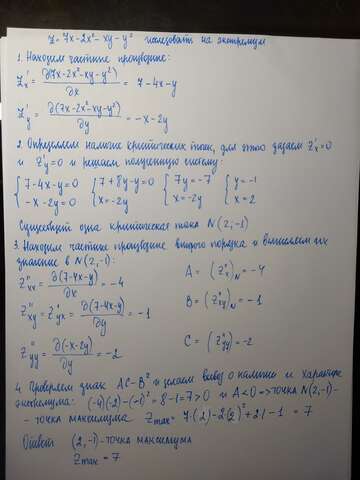 Z = 7x-2x²-xy-y² исследовать на экстремум
1. Находим частные производные:
Z'x = ∂(7x-2x²-xy-y²)/∂x = 7-4x-y
Z'y = ∂(7x-2x²-xy-y²)/∂y = -x-2y
2. Определяем наличие критических точек, для этого задаем Z'x=0
и Z'y=0 и решаем полученную систему:
{7-4x-y=0 {7+8y-y=0 {7y=-7 {y=-1
{-x-2y=0 {x=-2y {x=-2y {x=2
Существует одна критическая точка N(2,-1)
3. Находим частные производные второго порядка и вычисляем их
значение в N(2,-1):
Z''xx = ∂(7-4x-y)/∂x = -4 A = (Z''x²)N = -4
Z''xy = Z''yx = ∂(7-4x-y)/∂y = -1 B = (Z''xy)N = -1
Z''yy = ∂(-x-2y)/∂y = -2 C = (Z''y²)N = -2
4. Проверяем знак AC-B² и делаем вывод о наличии и характере
экстремума: (-4)(-2)-(-1)² = 8-1=7>0 и A<0 => точка N(2,-1)-
- точка максимума Zmax = 7·(2)-2·(2)²+2·1-1 = 7
Ответ: (2,-1)-точка максимума
Zmax = 7